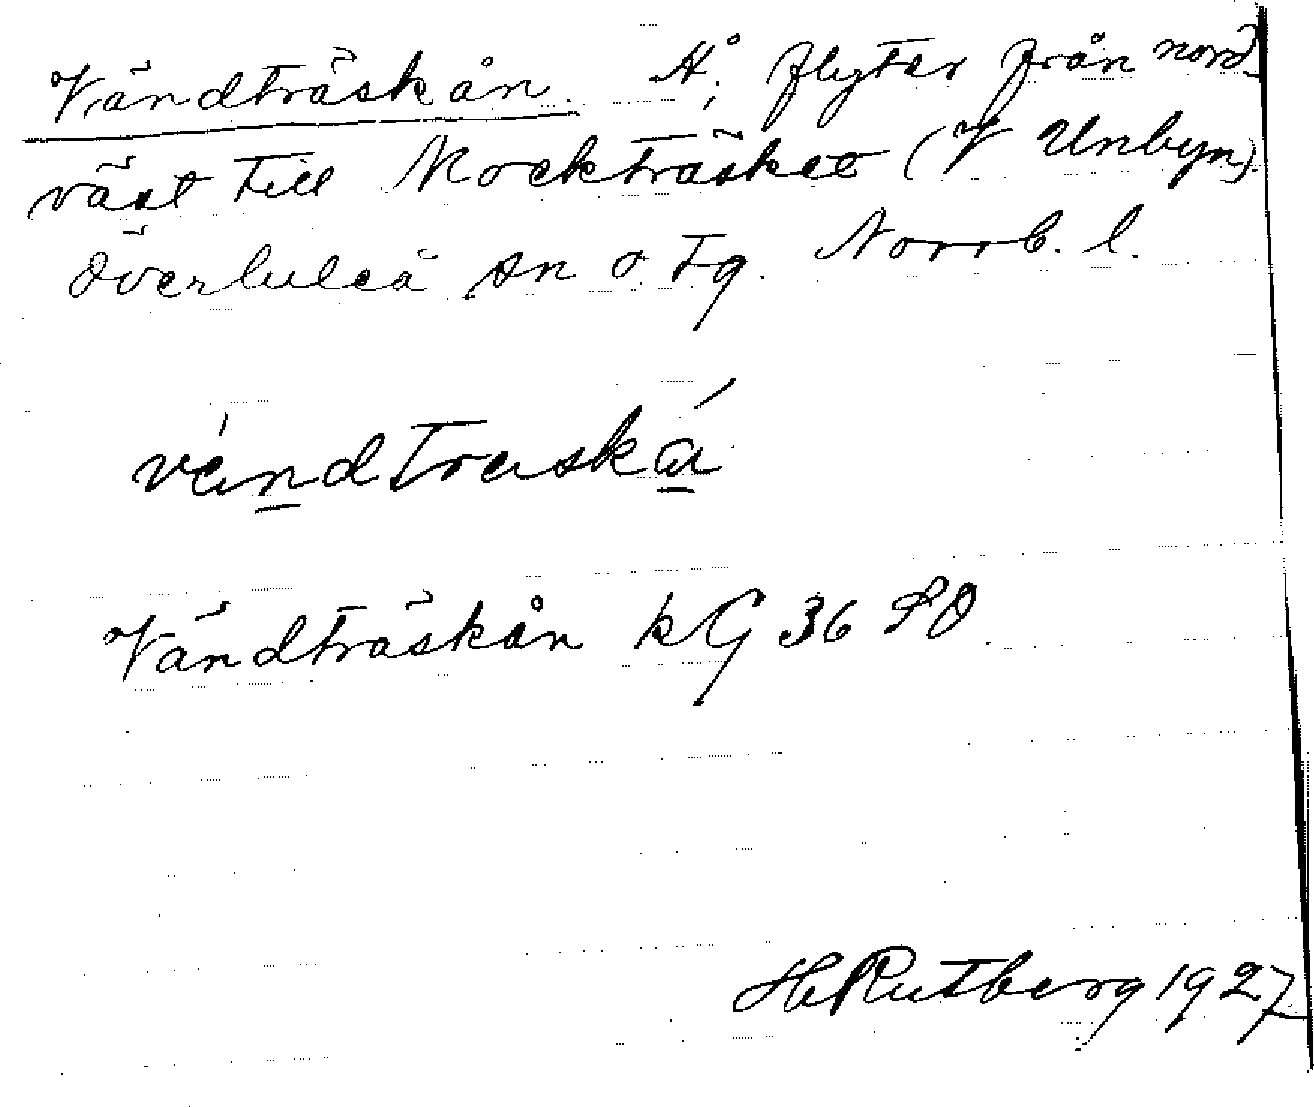 Vändträskån. Å, flyter från nord-
väst till Mockträsket (V Unbyn).
Överluleå sn o. tg. Norrb. l.
vä́ndträskǻ
Vändträskån kG 36 SO.
H Rutberg 1927